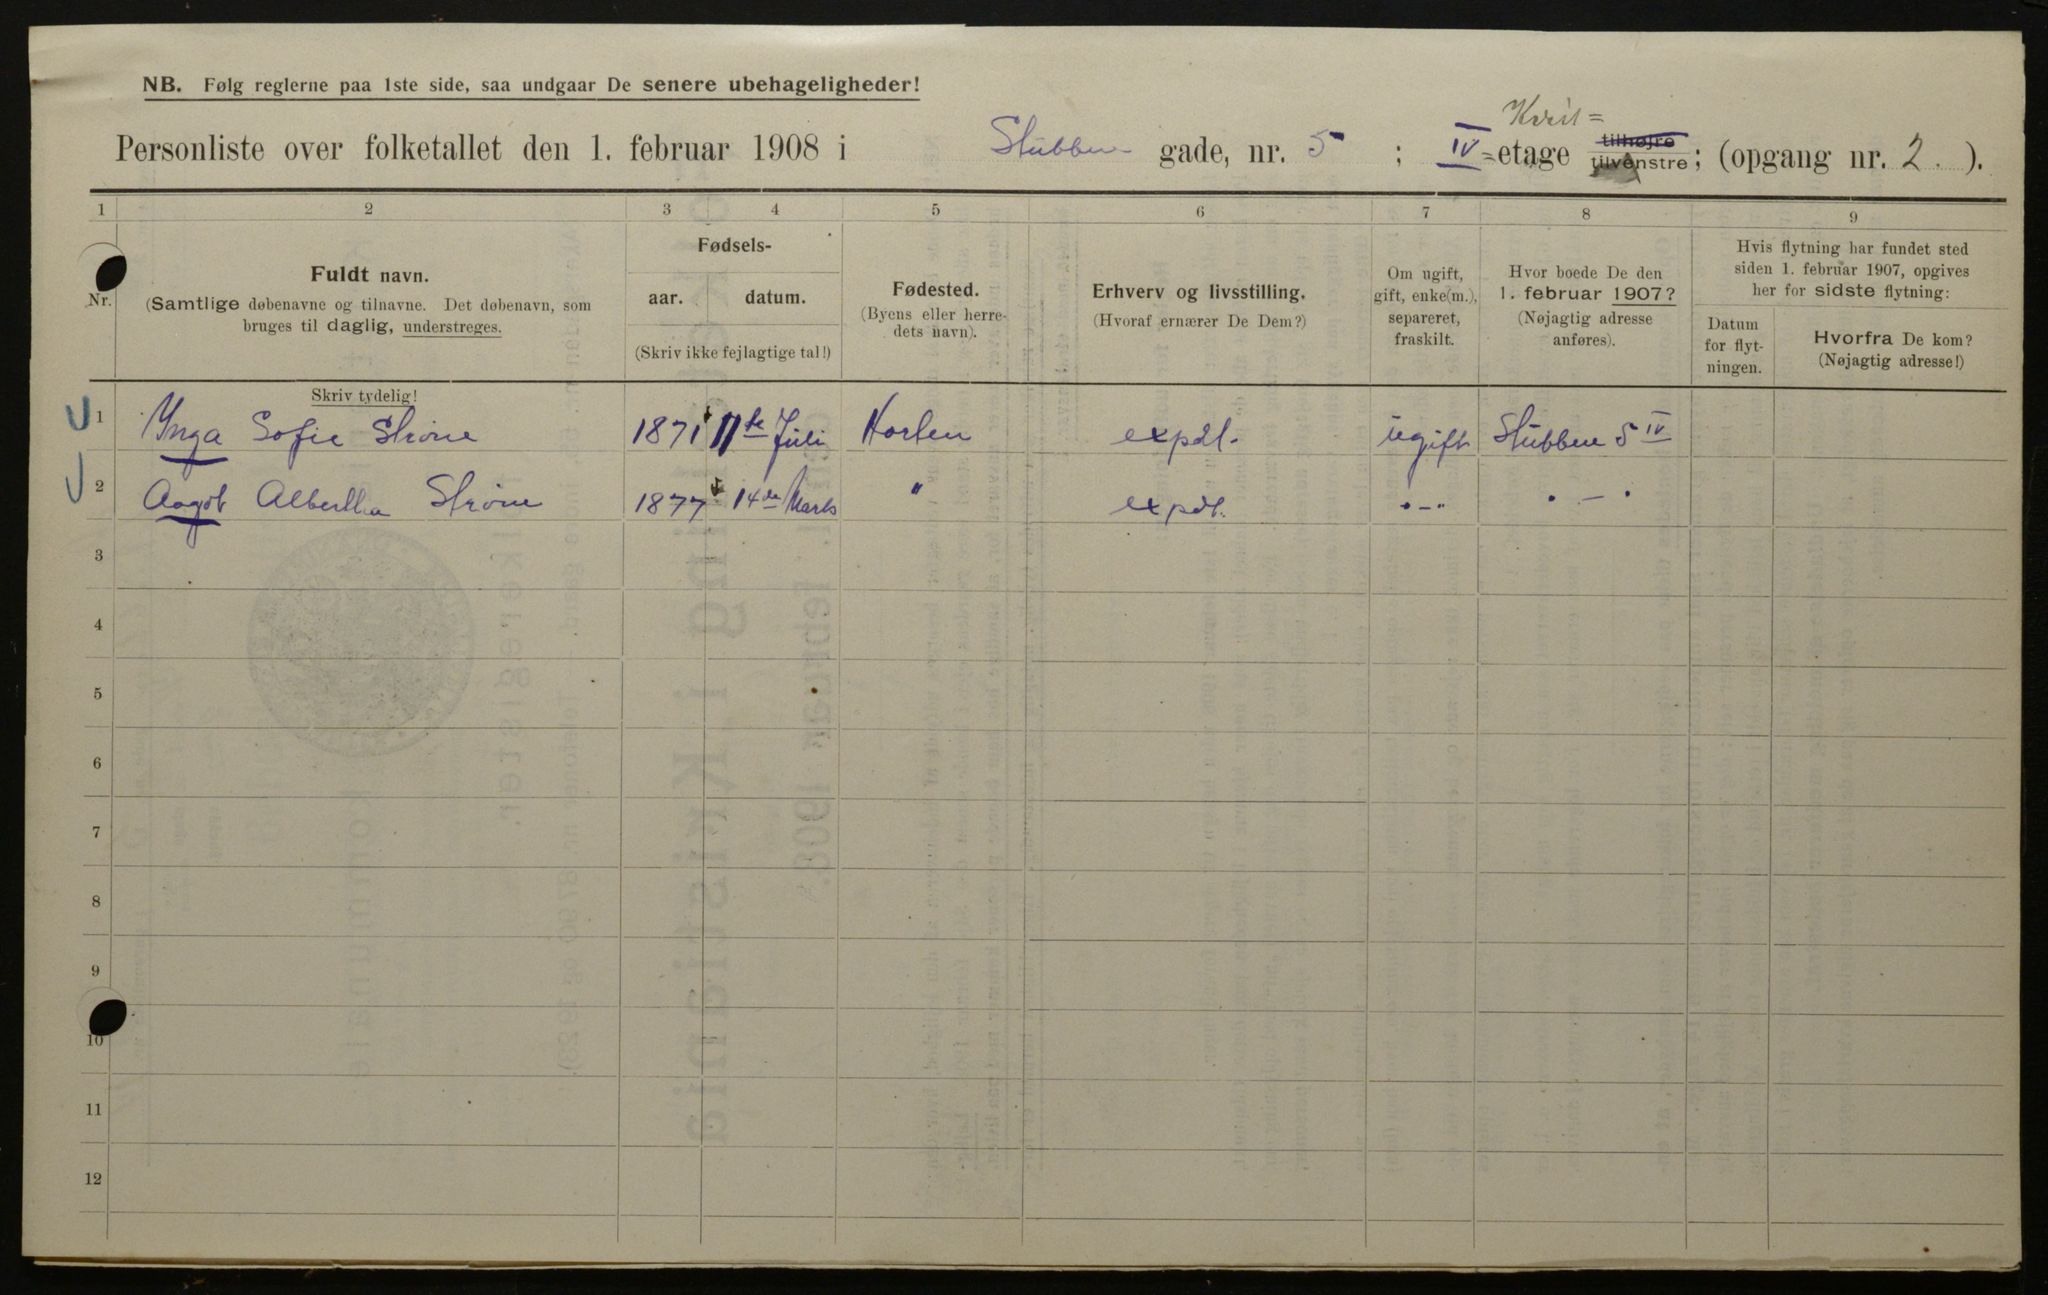 NB. Følg reglerne paa 1ste side, saa undgaar De senere ubehageligheder!
Kvist=
Personliste over folketallet den 1. februar 1908 i Stubben gade, nr. 5 ; IV=etage tilhøjre tilvenstre; (opgang nr. 2. ).
1 2 3 4 5 6 7 8 9
Nr.
Fuldt navn.
(Samtlige døbenavne og tilnavne. Det døbenavn, som
bruges til daglig, understreges.
Skriv tydelig!
Fødsels-
aar. datum.
(Skriv ikke fejlagtige tal!)
Fødested.
(Byens eller herre-
dets navn).
Erhverv og livsstilling.
(Hvoraf ernærer De Dem?)
Om ugift,
gift, enke(m.),
separeret,
fraskilt.
Hvor boede De den
1. februar 1907?
(Nøjagtig adresse
anføres).
Hvis flytning har fundet sted
siden 1. februar 1907, opgives
her for sidste flytning:
Datum
for flyt-
ningen.
Hvorfra De kom?
(Nøjagtig adresse!)
1 Ynga Sofie Strøne 1871 11te Juli Horten expdt. ugift Stubben 5 IV
2 Aagot Albertha Strøne 1877 14de Marts " expdt. "–" "–"
3
4
5
6
7
8
9
10
11
12